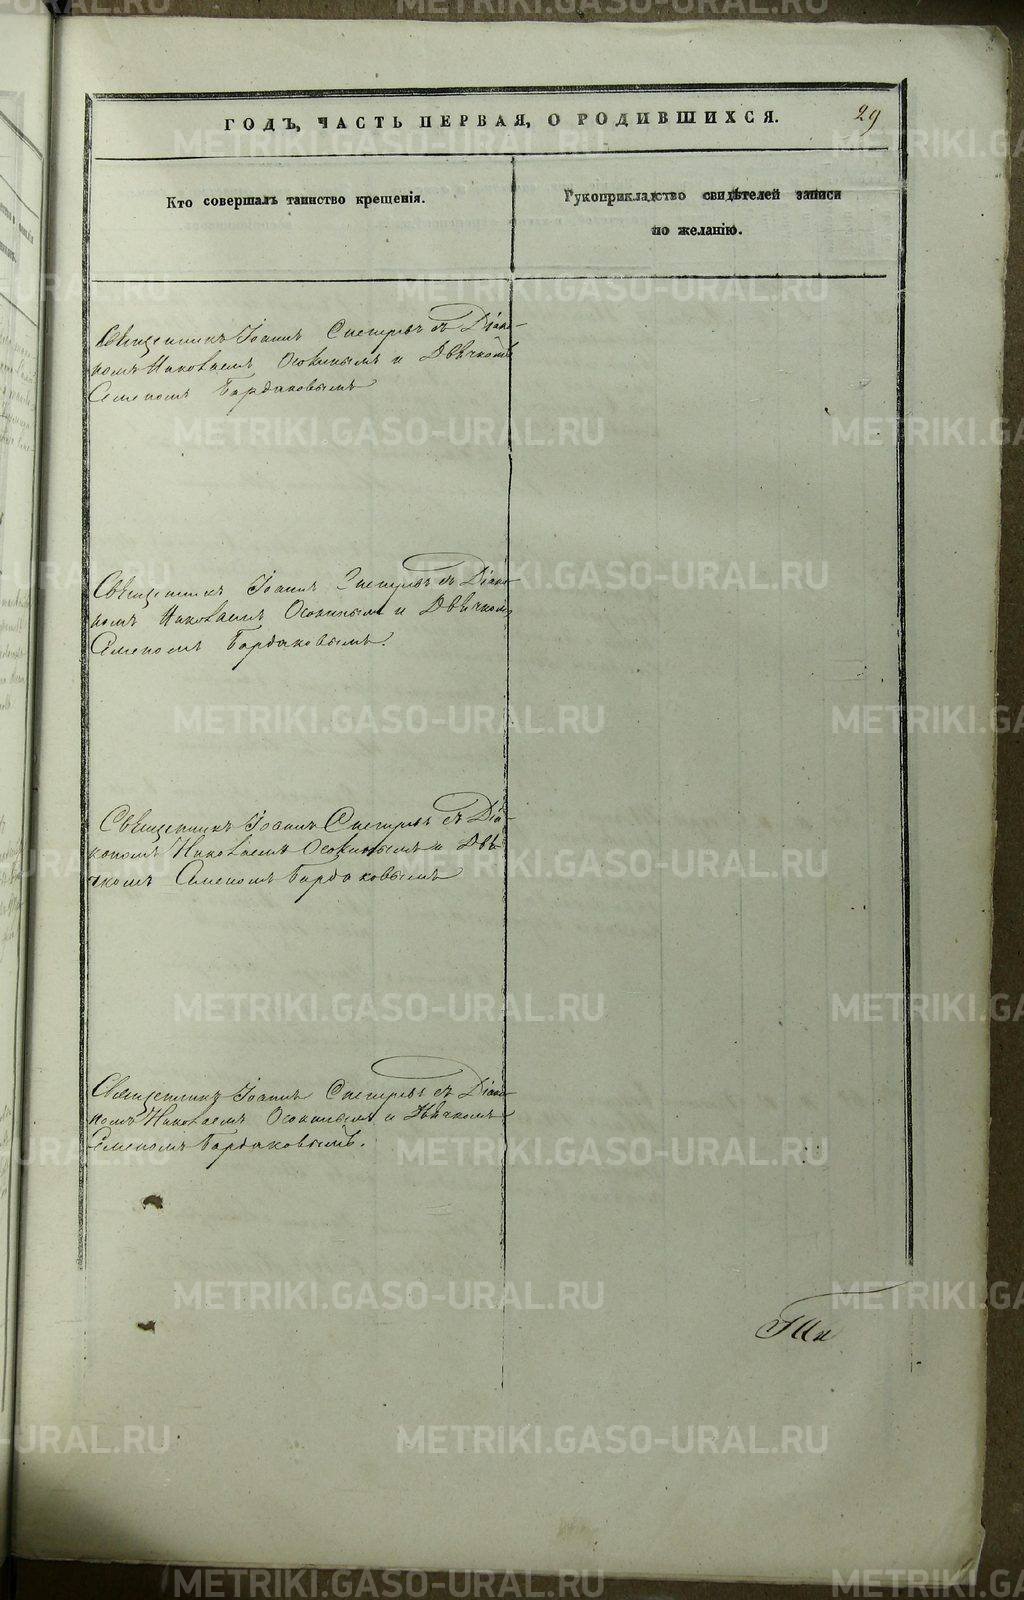 ГОДЪ, ЧАСТЬ ПЕРВАЯ, О РОДИВШИХСЯ. 29
Кто совершалъ таинство крещенія.
Рукоприкладство свидѣтелей записи
по желанію.
Священникъ Іоаннъ съ Діако-
номъ Николаемъ Осокинымъ и Дьячкомъ
Семеномъ Бардаковымъ
Священникъ Іоаннъ съ Діако-
номъ Николаемъ Осокинымъ и Дьячкомъ
Семеномъ Бардаковымъ.
Священникъ Іоаннъ съ Діа-
кономъ Николаемъ Осокинымъ и Дья-
чкомъ Семеномъ Бардаковымъ
Священникъ Іоаннъ съ Діако-
номъ Николаемъ Осокинымъ и Дьячкомъ
Семеномъ Бардаковымъ.
METRIKI.GASO-URAL.RU